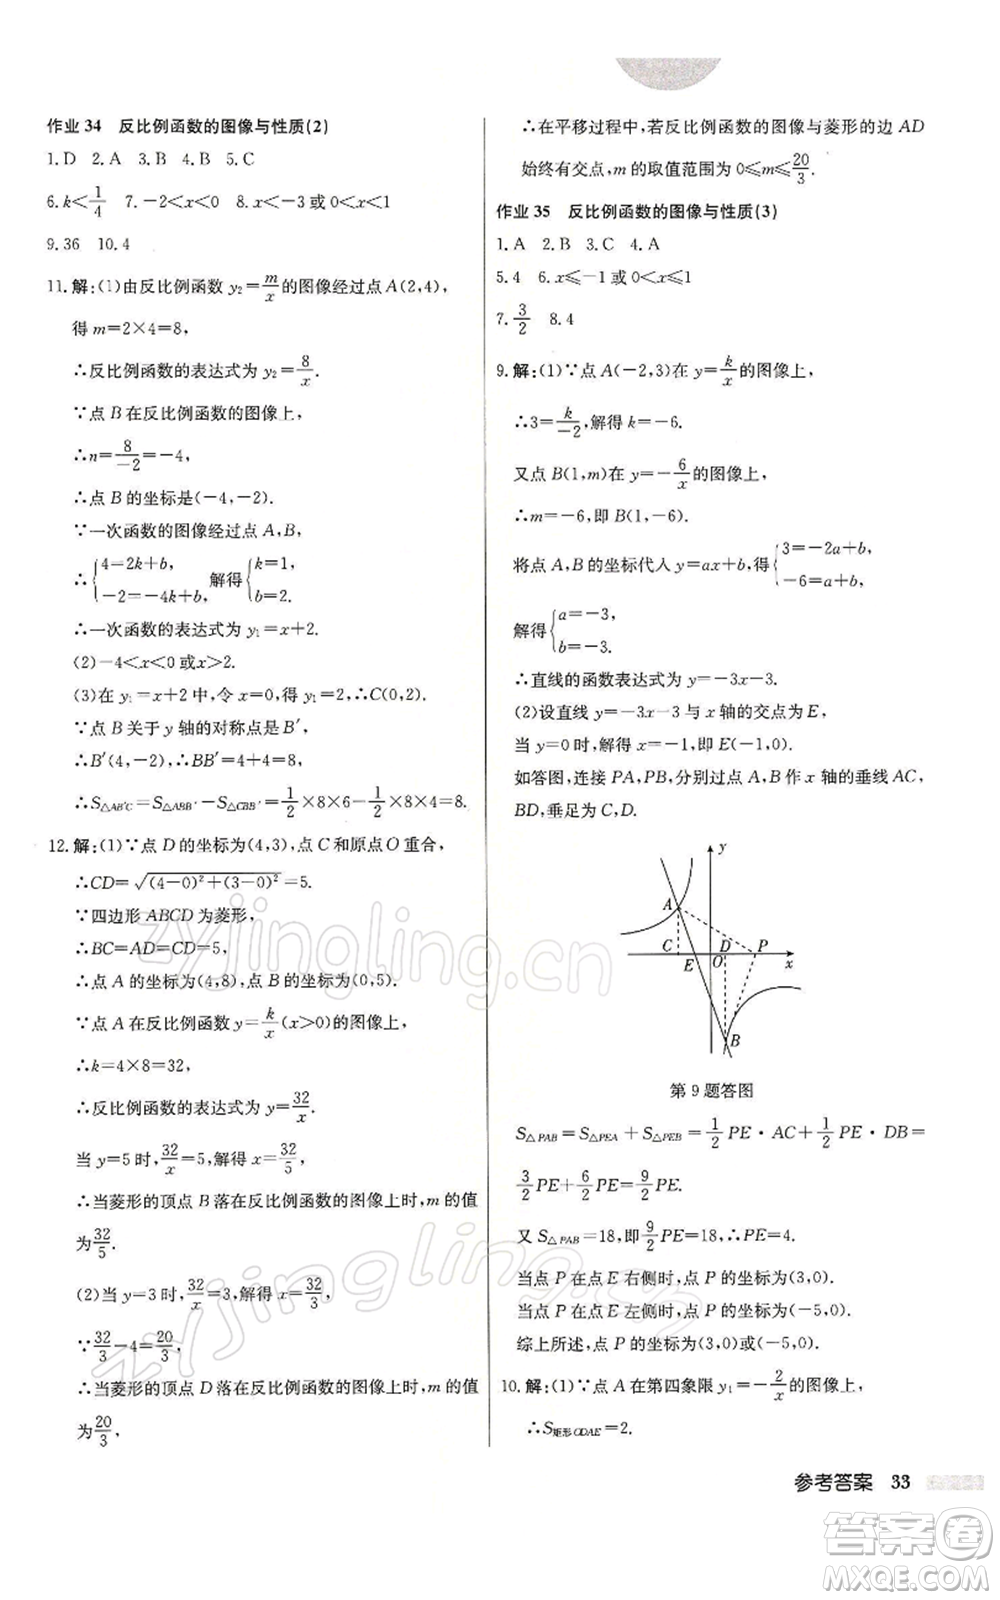 作业 34　反比例函数的图像与性质(2)
1. D　2. A　3. B　4. B　5. C
6. k<1/4　7. －2<x<0　8. x<－3 或 0<x<1
9. 36　10. 4
11. 解:(1)由反比例函数 y₂=m/x的图像经过点 A(2,4),
得 m=2×4=8,
∴反比例函数的表达式为 y₂=8/x.
∵点 B 在反比例函数的图像上,
∴n=8/－2=－4,
∴点 B 的坐标是(－4,－2).
∵一次函数的图像经过点 A,B,
∴{4=2k+b, －2=－4k+b, 解得{k=1, b=2.
∴一次函数的表达式为 y₁=x+2.
(2)－4<x<0 或x>2.
(3)在 y₁=x+2 中,令 x=0,得 y₁=2,∴C(0,2).
∵点 B 关于 y 轴的对称点是 B′,
∴B′(4,－2),∴BB′=8,
∴S△AB′C=S△ABB′－S△CBB′=1/2×8×6－1/2×8×4=8.
12. 解:(1)∵点 D 的坐标为(4,3),点 C 和原点 O 重合,
∴CD=√((4－0)²+(3－0)²)=5.
∵四边形 ABCD 为菱形,
∴BC=AD=CD=5,
∴点 A 的坐标为(4,8),点 B 的坐标为(0,5).
∵点 A 在反比例函数 y=k/x(x>0)的图像上,
∴k=4×8=32,
∴反比例函数的表达式为 y=32/x.
当 y=5 时,32/x=5,解得 x=32/5,
∴当菱形的顶点 B 落在反比例函数的图像上时,m 的值
为32/5.
(2)当 y=3 时,32/x=3,解得 x=32/3,
∵32/3－4=20/3,
∴当菱形的顶点 D 落在反比例函数的图像上时,m 的值
为20/3,
∴在平移过程中,若反比例函数的图像与菱形的边 AD
始终有交点,m 的取值范围为 0≤m≤20/3.
作业 35　反比例函数的图像与性质(3)
1. A　2. B　3. C　4. A
5. 4　6. x≤－1 或 0<x≤1
7. 3/2　8. 4
9. 解:(1)∵点 A(－2,3)在 y=k/x的图像上,
∴3=k/－2,解得 k=－6.
又点 B(1,m)在 y=－6/x的图像上,
∴m=－6,即 B(1,－6).
将点 A,B 的坐标代入 y=ax+b,得{3=－2a+b, －6=a+b,
解得{a=－3, b=－3.
∴直线的函数表达式为 y=－3x－3.
(2)设直线 y=－3x－3 与 x 轴的交点为 E,
当 y=0 时,解得 x=－1,即 E(－1,0).
如答图,连接 PA,PB,分别过点 A,B 作 x 轴的垂线 AC,
BD,垂足为 C,D.
y
A
C
D
P
E
O
x
B
第 9 题答图
S△PAB=S△PEA+S△PEB=1/2PE·AC+1/2PE·DB=
3/2PE+6/2PE=9/2PE.
又 S△PAB=18,即9/2PE=18,∴PE=4.
当点 P 在点 E 右侧时,点 P 的坐标为(3,0).
当点 P 在点 E 左侧时,点 P 的坐标为(－5,0).
综上所述,点 P 的坐标为(3,0)或(－5,0).
10. 解:(1)∵点 A 在第四象限 y₁=－2/x的图像上,
∴S矩形ODAE=2.
参考答案　33
zyjingling.cn
zyjingling.cn
答案卷
MXQE.COM